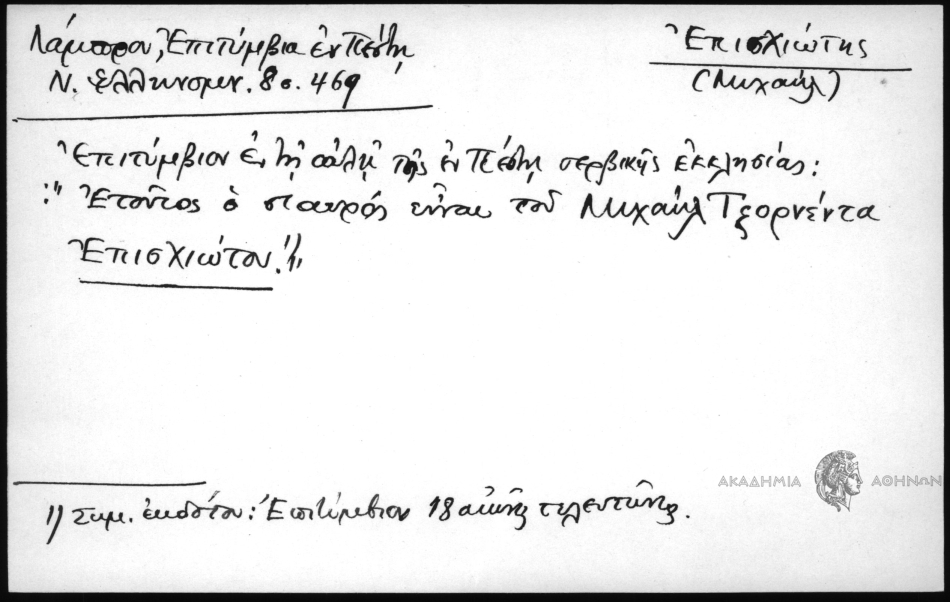 Λάμπρου, Ἐπιτύμβια ἐν Πέστῃ
Ν. Ἑλληνομν. 8 σ. 469
Ἐπισχιώτης
(Μιχαήλ)
Ἐπιτύμβιον ἐν τῇ αὐλῇ τῆς ἐν Πέστῃ σερβικῆς ἐκκλησίας:
:" Ἐτοῦτος ὁ σταυρός εἶναι τοῦ Μιχαήλ Τζορνέντα
Ἐπισχιώτου.1)"
1) Σημ. ἐκδότου: Ἐπιτύμβιον 18
ΑΚΑΔΗΜΙΑ ΑΘΗΝΩΝ